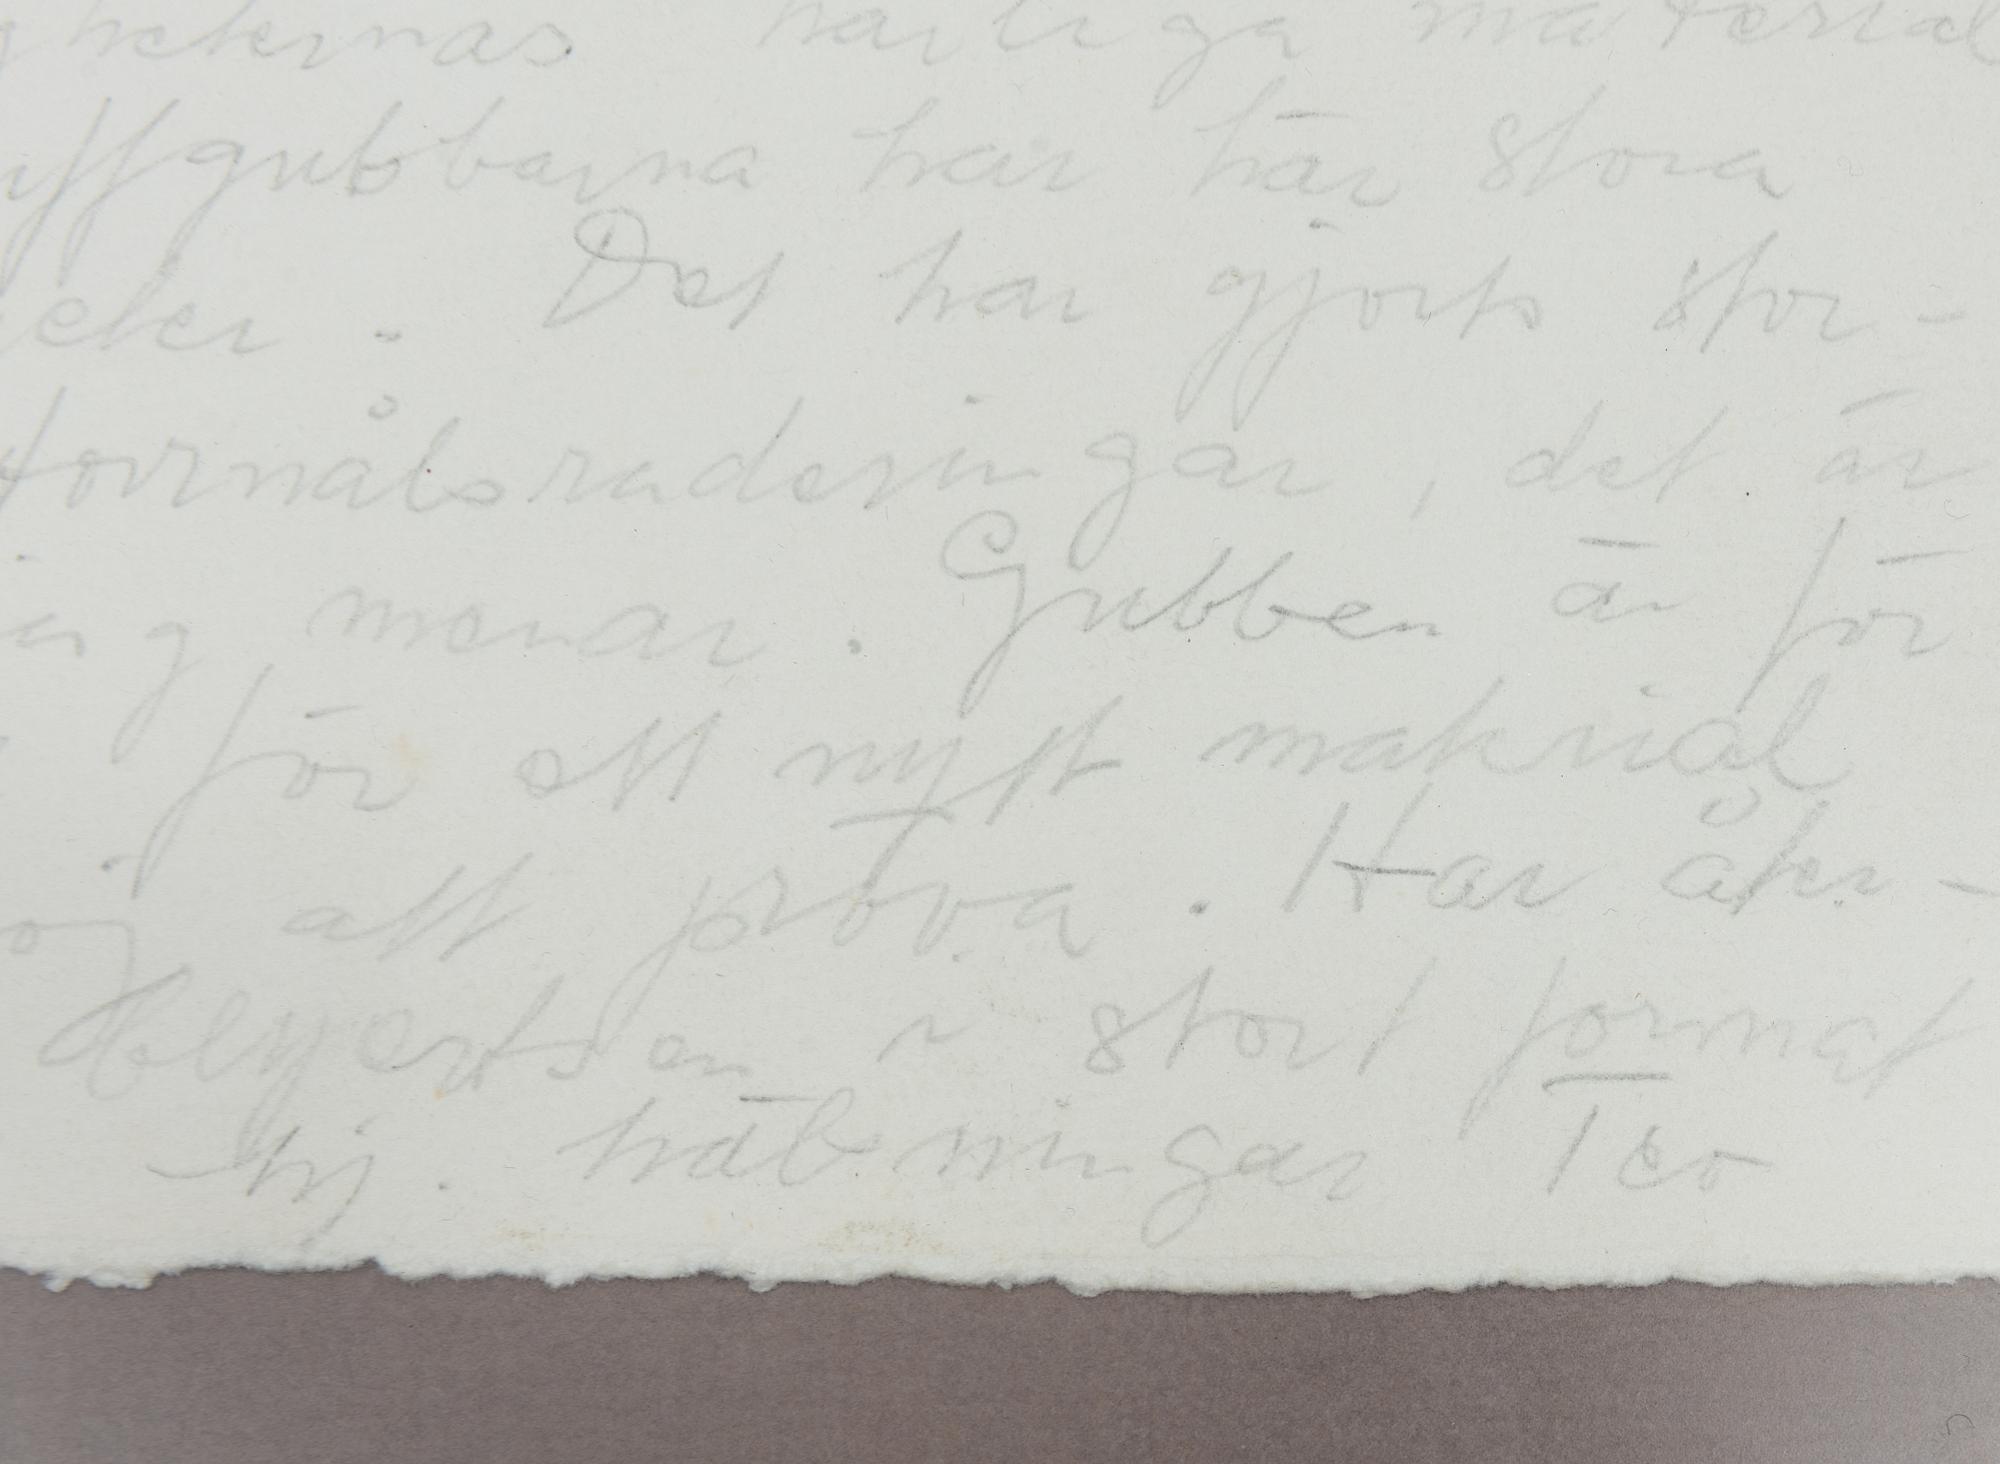 gheternas härliga material
uffgubbarna har här stora
heter. Det har gjorts stor-
tornålsraderingar, det är
ing menar. Gubben är för
för att nytt material
att pröva. Har åter-
Helgertsen i stort format
hj. hälsningar Teo